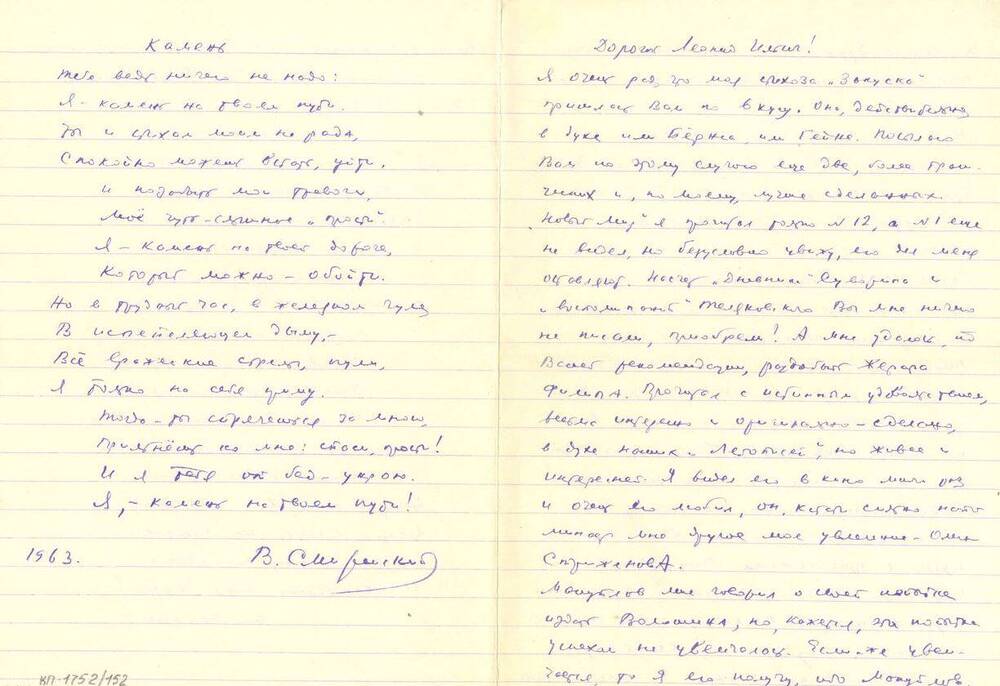 Камень
Тебе ведь ничего не надо:
Я - камень на твоем пути.
Ты и стихам моим не рада,
Спокойно можешь встать, уйти.
и позабыть мои тревоги,
Моё чуть-слышное "прости".
Я - камень на твоей дороге,
Который можно - обойти.
Но в трудный час, в железном гуле
В испепеляющем дыму, -
Все вражеские стрелы, пули,
Я только на себя приму.
Тогда - ты спрячешься за мною,
Прильнёшь ко мне: спаси, прости!
И я тебя от бед - укрою.
Я, - камень на твоем пути!
1963. В. Смиренский
КП-1752/152
Дорогой Леонид Ильич!
Я очень рад, что моя стихоза "Закуска"
пришлась Вам по вкусу. Она, действительно
в духе или Бёрнса, или Гейне. Посылаю
Вам по этому случаю еще две, более
и, по моему, лучше сделанных.
"Новый мир" я прочитал только N 12, а N 1 еще
не видел, но безусловно увижу, его для меня
оставляют. Насчет "Дневника" Суворина и
"воспоминаний" Теляковского Вы мне ничего
не писали, приобрели! А мне удалось, по
Вашей рекомендации, раздобыть Жерара
Филипа. Прочитал с истинным удовольствием,
весьма интересно и оригинально - сделано,
в духе наших "Летописей", но живее и
интересней. Я видел его в кино много раз
и очень его любил, он, кстати сильно напо-
минает мне другое мое увлечение - Олега
Стриженова.
Мануйлов мне говорил о своей попытке
издать Волошина, но, кажется, эта попытка
успехом не увенчалась. Если же увен-
чается, то я его получу, ибо Мануйлов.